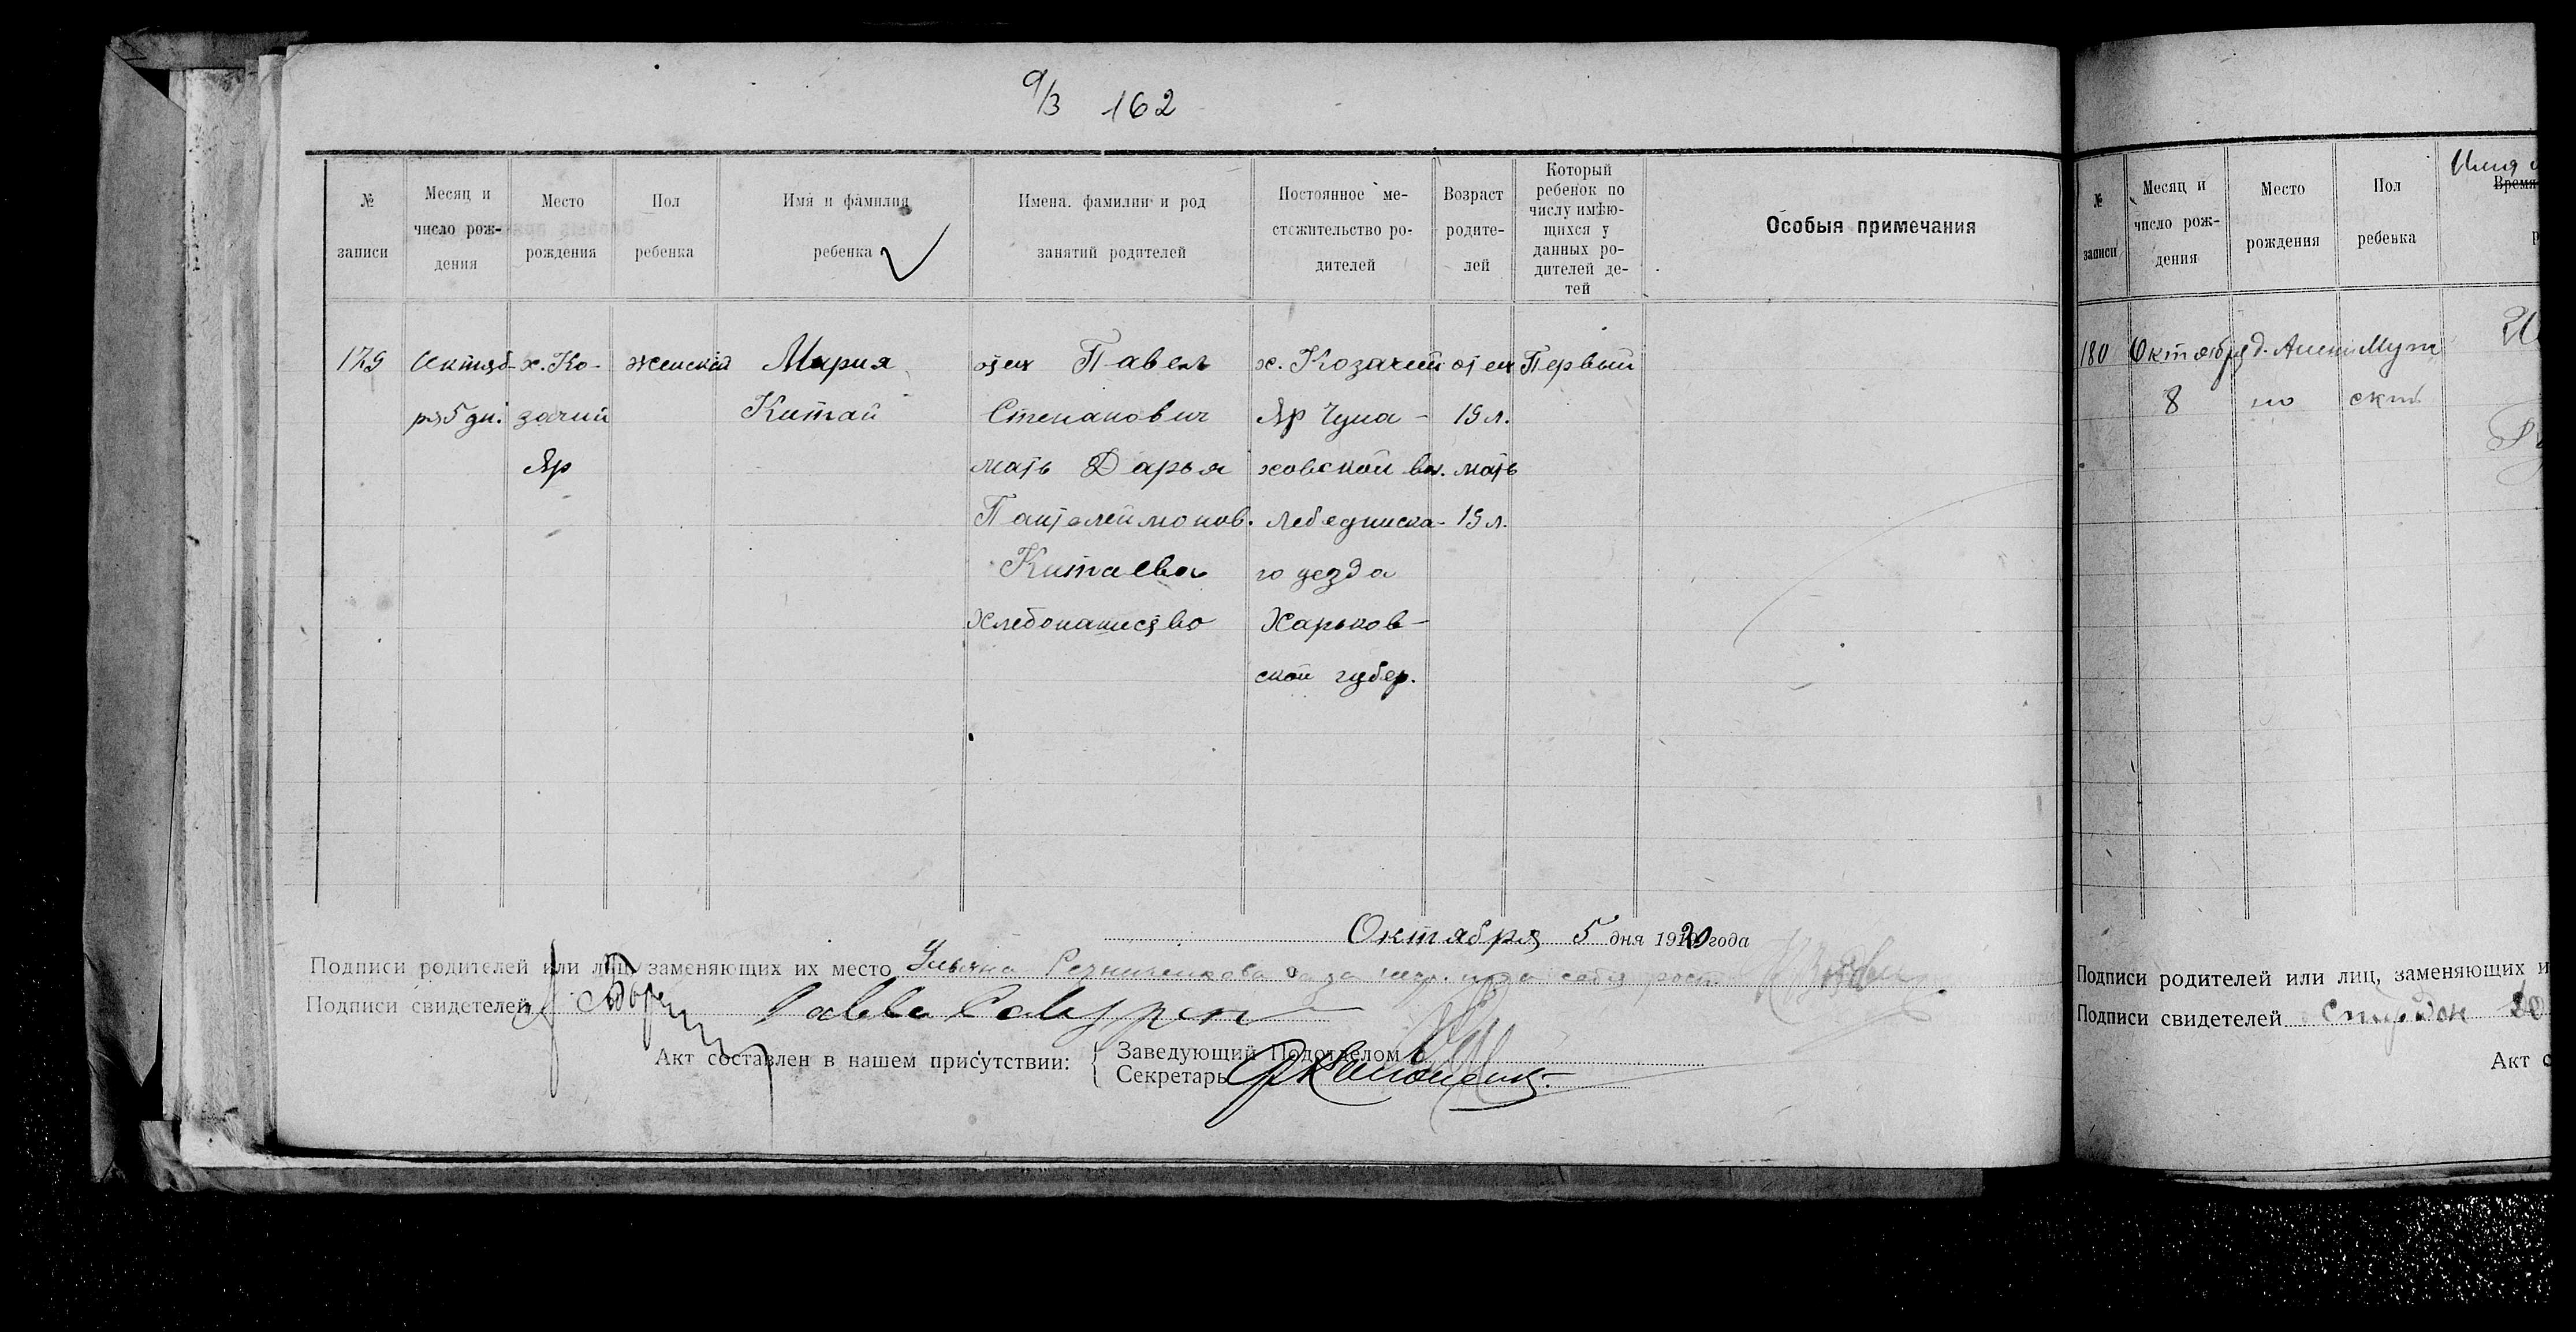 9/3 162
№ записи
Месяц и число рождения
Место рождения
Пол ребенка
Имя и фамилия ребенка
Имена. фамилии и род занятий родителей
Постоянное местожительство родителей
Возраст родителей
Который ребенок по числу имѣющихся у данных родителей детей
Особыя примечания
179 Октяб- х. Ко- женский Мария отец Павел х. Козачий отец Первый
ря 5 дн. зачий Китай Степанович Яр Чупа- 19 л.
Яр мать Дарья ховской вол. мать
Пантелеймонов. Лебединска- 19 л.
Китаева го уезда
Хлебопашество Харьков-
ской губер.
Октября 5 дня 1920 года
Подписи родителей или лиц, заменяющих их место Ульяна
Подписи свидетелей
Акт составлен в нашем присутствии: Заведующий Подотделом
Секретарь
№ записи
Месяц и число рождения
Место рождения
Пол ребенка
Имя
Время
180 Октября д. Муж
8 ск
Подписи родителей или лиц, заменяющих и
Подписи свидетелей
Акт с